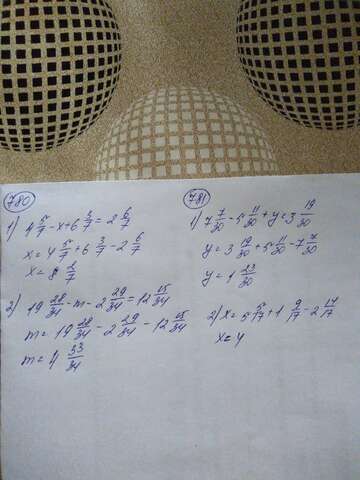 780
1) 4 5/7 - x + 6 3/7 = 2 6/7
x = 4 5/7 + 6 3/7 - 2 6/7
x = 8 2/7
2) 19 28/34 - m - 2 29/34 = 12 15/34
m = 19 28/34 - 2 29/34 - 12 15/34
m = 4 33/34
781
1) 7 7/30 - 5 11/30 + y = 3 19/30
y = 3 19/30 + 5 11/30 - 7 7/30
y = 1 23/30
2) x = 5 5/17 + 1 9/17 - 2 14/17
x = 4